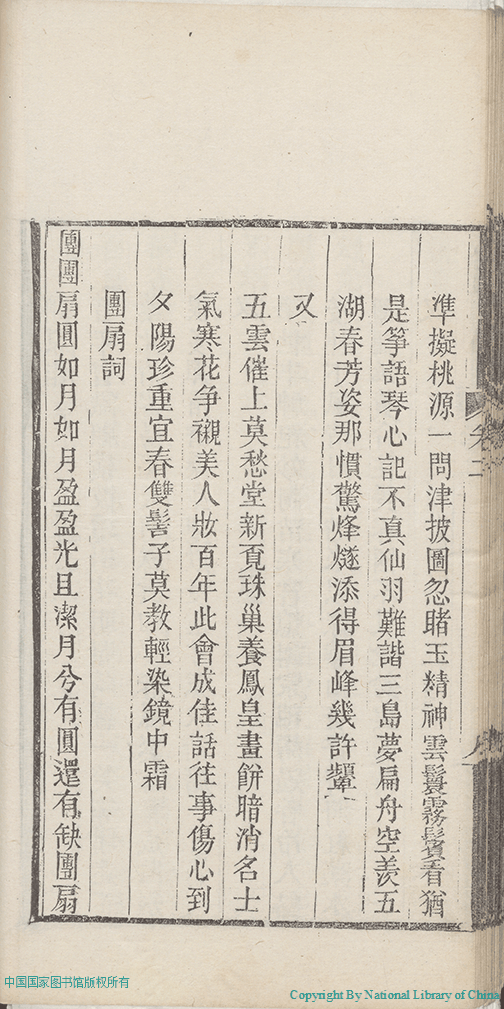 準擬桃源一問津披圖忽睹玉精神雲鬟霧鬢看猶
是箏語琴心記不真仙羽難諧三島夢扁舟空羨五
湖春芳姿那慣驚烽燧添得眉峰幾許顰
又
五雲催上莫愁堂新覓珠巢養鳳皇畫餅暗消名士
氣寒花爭襯美人妝百年此會成佳話往事傷心到
夕陽珍重宜春雙髻子莫教輕染鏡中霜
團扇詞
團團扇圓如月如月盈盈光且潔月兮有圓還有缺團扇
卷二
中国国家图书馆版权所有
Copyright By National Library of China